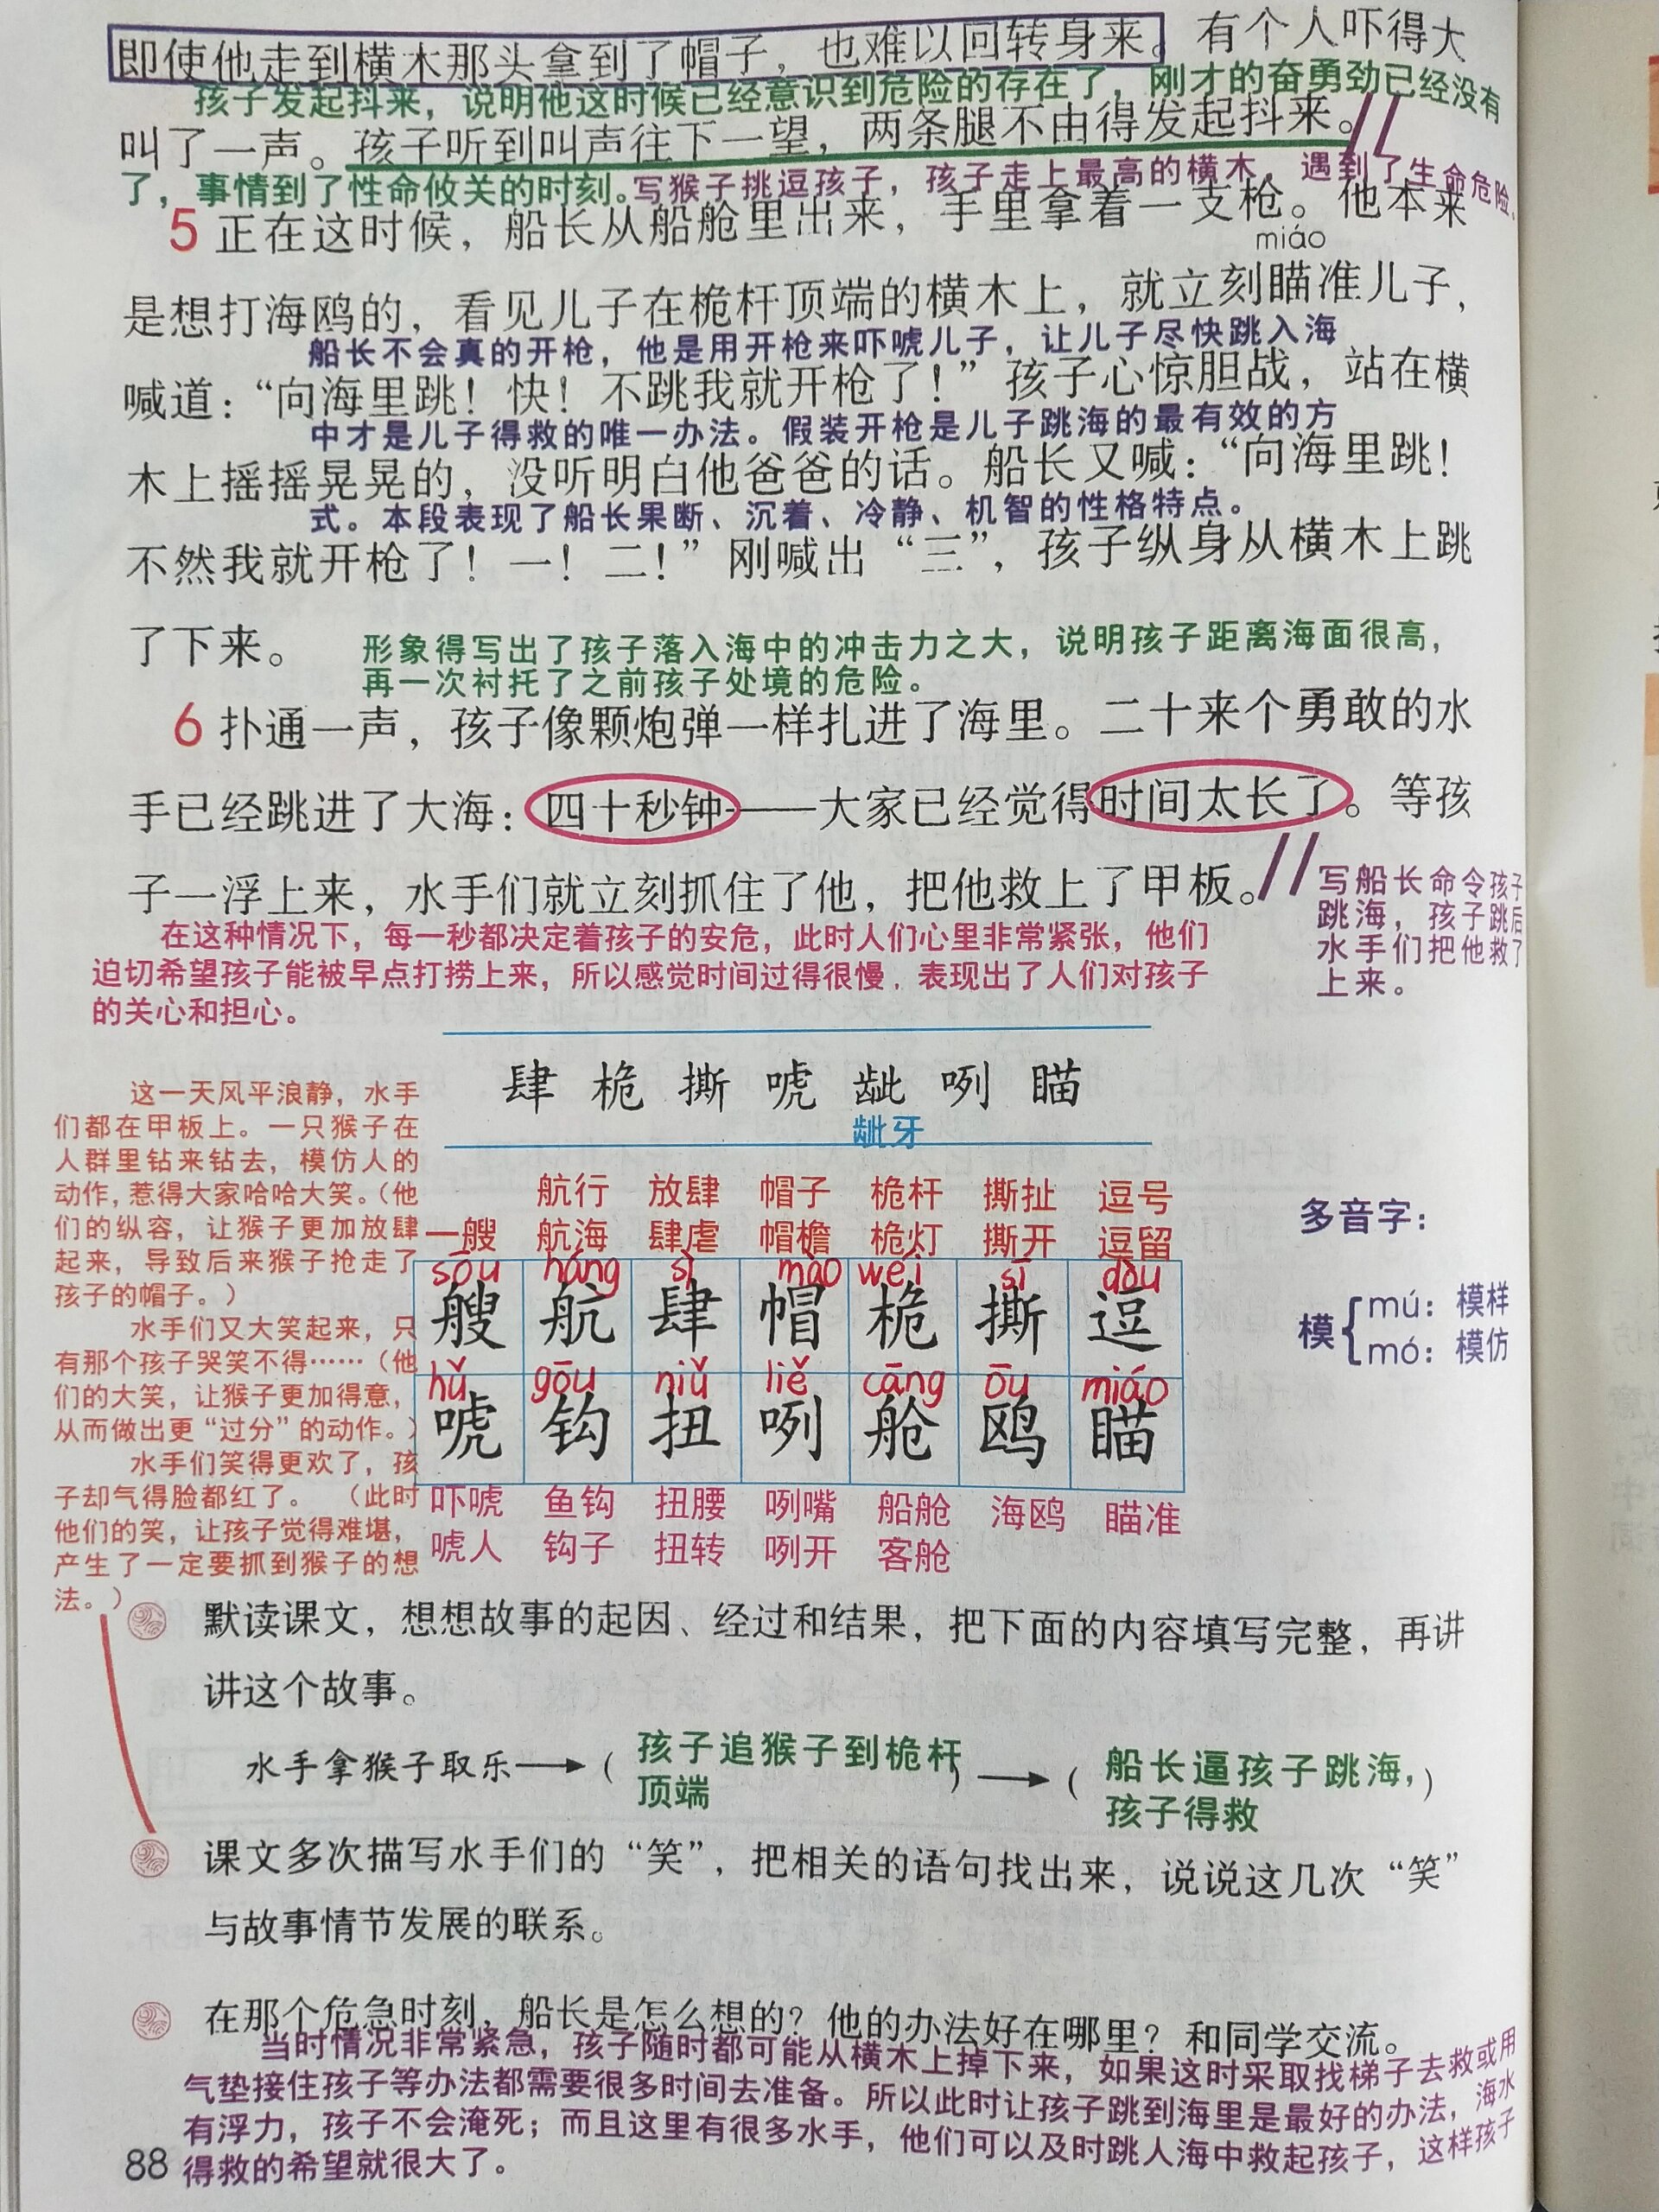 即使他走到横木那头拿到了帽子，也难以回转身来。有个人吓得大
孩子发起抖来，说明他这时候已经意识到危险的存在了，刚才的奋勇劲已经没有
叫了一声。孩子听到叫声往下一望，两条腿不由得发起抖来。
了，事情到了性命攸关的时刻。写猴子挑逗孩子，孩子走上最高的横木，遇到了生命危险。
5 正在这时候，船长从船舱里出来，手里拿着一支枪。他本来
miáo
是想打海鸥的，看见儿子在桅杆顶端的横木上，就立刻瞄准儿子，
船长不会真的开枪，他是用开枪来吓唬儿子，让儿子尽快跳入海
喊道：“向海里跳！快！不跳我就开枪了！”孩子心惊胆战，站在横
中才是儿子得救的唯一办法。假装开枪是儿子跳海的最有效的方
木上摇摇晃晃的，没听明白他爸爸的话。船长又喊：“向海里跳！
式。本段表现了船长果断、沉着、冷静、机智的性格特点。
不然我就开枪了！一！二！”刚喊出“三”，孩子纵身从横木上跳
了下来。
形象得写出了孩子落入海中的冲击力之大，说明孩子距离海面很高，
再一次衬托了之前孩子处境的危险。
6 扑通一声，孩子像颗炮弹一样扎进了海里。二十来个勇敢的水
手已经跳进了大海：四十秒钟——大家已经觉得时间太长了。等孩
子一浮上来，水手们就立刻抓住了他，把他救上了甲板。
写船长命令孩子
跳海，孩子跳后
水手们把他救了
上来。
在这种情况下，每一秒都决定着孩子的安危，此时人们心里非常紧张，他们
迫切希望孩子能被早点打捞上来，所以感觉时间过得很慢，表现出了人们对孩子
的关心和担心。
肆 桅 撕 唬 龇 咧 瞄
龇牙
这一天风平浪静，水手
们都在甲板上。一只猴子在
人群里钻来钻去，模仿人的
动作，惹得大家哈哈大笑。（他
们的纵容，让猴子更加放肆
起来，导致后来猴子抢走了
孩子的帽子。）
水手们又大笑起来，只
有那个孩子哭笑不得……（他
们的大笑，让猴子更加得意，
从而做出更“过分”的动作。）
水手们笑得更欢了，孩
子却气得脸都红了。（此时
他们的笑，让孩子觉得难堪，
产生了一定要抓到猴子的想
法。）
航行 放肆 帽子 桅杆 撕扯 逗号
一艘 航海 肆虐 帽檐 桅灯 撕开 逗留
sōu háng sì mào wéi sī dòu
艘 航 肆 帽 桅 撕 逗
hǔ gōu niǔ liě cāng ōu miáo
唬 钩 扭 咧 舱 鸥 瞄
吓唬 鱼钩 扭腰 咧嘴 船舱 海鸥 瞄准
唬人 钩子 扭转 咧开 客舱
多音字：
模{mú：模样
mó：模仿
默读课文，想想故事的起因、经过和结果，把下面的内容填写完整，再讲
讲这个故事。
水手拿猴子取乐→（孩子追猴子到桅杆
顶端）→（船长逼孩子跳海，
孩子得救）
课文多次描写水手们的“笑”，把相关的语句找出来，说说这几次“笑”
与故事情节发展的联系。
在那个危急时刻，船长是怎么想的？他的办法好在哪里？和同学交流。
当时情况非常紧急，孩子随时都可能从横木上掉下来，如果这时采取找梯子去救或用
气垫接住孩子等办法都需要很多时间去准备。所以此时让孩子跳到海里是最好的办法，海水
有浮力，孩子不会淹死；而且这里有很多水手，他们可以及时跳人海中救起孩子，这样孩子
得救的希望就很大了。
88